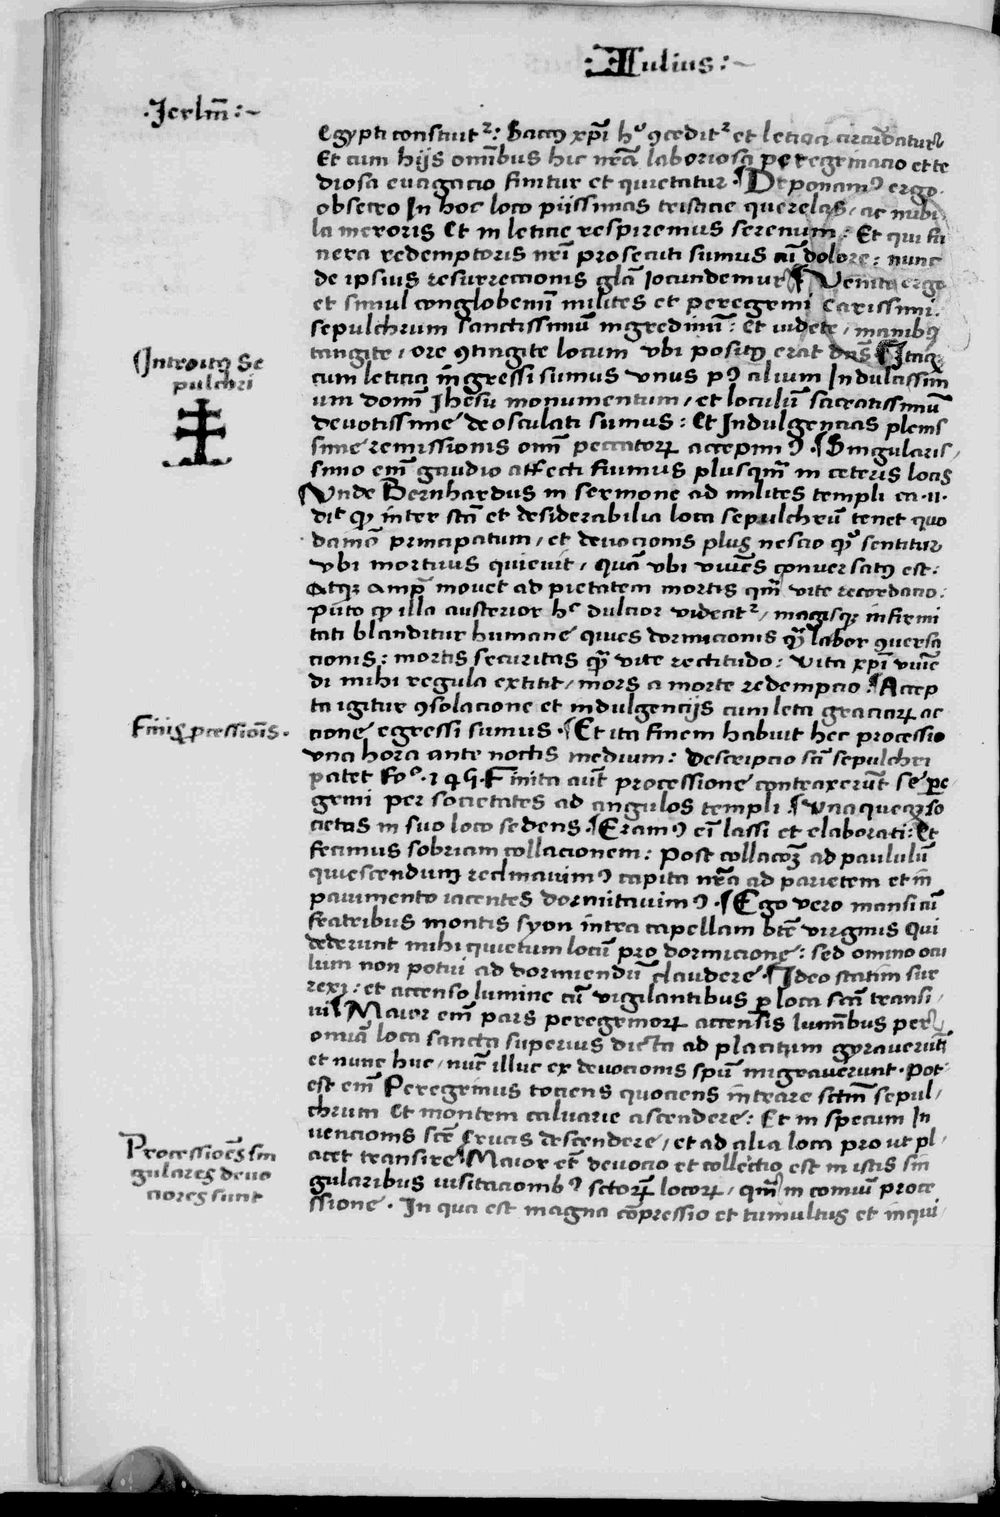 Iulius:~
·Jerlm̄:~
Egypti constuitᷣ: Saccꝰ xp̄i hͦ ↄceditᷣ et leticia circūdaturᷣ
Et cum hijs om̄ibus hic nr̄a laboriosa peregrinacio et te
diosa euagacio finitur et quietatur ¶ Deponamꝰ ergo
obsecro In hoc loco pijssimas tristicie querelas, ac nubi
la meroris Et in leticie respiremus serenum: Et qui fu
nera redemptoris nr̄i prosecuti sumus cū dolore: nunc
de ipsius resurrectionis gl̄a Jocundemur ¶ Venite ergo
et simul conglobemī milites et peregrini Carissimi.
sepulchrum sanctissimū ingredimī: Et videte, manibꝰ
tangite, ore ↄtingite locum vbi positꝰ erat dn̄s ¶ Itaqꝫ
Introitꝰ Se
pulchri
cum leticia ingressi sumus vnus pꝰ alium In dulcissim
um domī Jhesu monumentum, et loculū sacratissimū
deuotissime deosculati sumus: Et Indulgencias plenis
sime remissionis om̄ peccatorꝝ accepimꝰ. ¶ Singularis,
simo em̄ gaudio affecti fuimus plusqm̄ in ceteris locis
Vnde Bernhardus in sermone ad milites templi ca·11·
dit̄ ꝙ inter sctā et desiderabilia loca sepulchrū tenet quo
dāmō principatum, et deuocionis plus nescio qͦ sentitur
vbi mortuus quieuit, quā vbi viuēs conuersatꝰ est:
Atqꝫ amp̄ mouet ad pietatem mortis qm̄ vite recordacio:
puto ꝙ illa austerior hͨ dulcior videatᷣ, magisqꝫ infirmi
tati blanditur humane quies dormicionis qm̄ labor ↄuersa
cionis: mortis securitas qm̄ vite rectitudo: Vita xp̄i viuē
di mihi regula extitit, mors a morte redempcio. ¶ Accep
ta igitur ↄsolacione et indulgencijs cum leta graciarꝝ ac
Finis ꝓcessiōis.
cione egressi sumus. ¶ Et ita finem habuit hec processio
vna hora ante noctis medium: Descripcio sctī sepulchri
patet Foͦ. 145 Finita aut̄ processione contraxerūt se ꝑe
grini per societates ad angulos templi ¶ Vnaqueqꝫ so
cietas in suo loco sedens. ¶ Eramꝰ eī lassi et elaborati: Et
fecimus sobriam collacionem: Post collacōꝫ ad paululū
quiescendum reclinauimꝰ capita nr̄a ad parietem et in
pauimento iacentes dormitauimꝰ. ¶ Ego vero mansi cū
fratribus montis syon intra capellam btē virginis Qui
dederunt mihi quietum locū pro dormicione: sed omnino ocu
lum non potui ad dormiendū claudere. ¶ Ideo statim sur
rexi: et accenso lumine cū vigilantibus ꝑ loca sctā transi,
ui ¶ Maior em̄ pars peregrinorꝝ accensis lumībus per
omīa loca sancta superius dicta ad placitum gyrauerūt
et nunc huc, nūc illuc ex deuocionis spū migrauerunt. Pot
est em̄ Peregrinus tociens quociens intrare sctm̄ sepul,
chrum Et montem caluarie ascendere: Et in specum In
uencionis sctē Crucis descendere, et ad alia loca pro ut pl,
Processiōes sin
gulares deuo
ciores sunt
acet transire ¶ Maior et̄ deuocio et collectio est in istis sin
gularibus visitacionibꝰ sctorꝝ locorꝝ, qm̄ in comūi proce
ssione. In qua est magna cōpressio et tumultus et inqui,